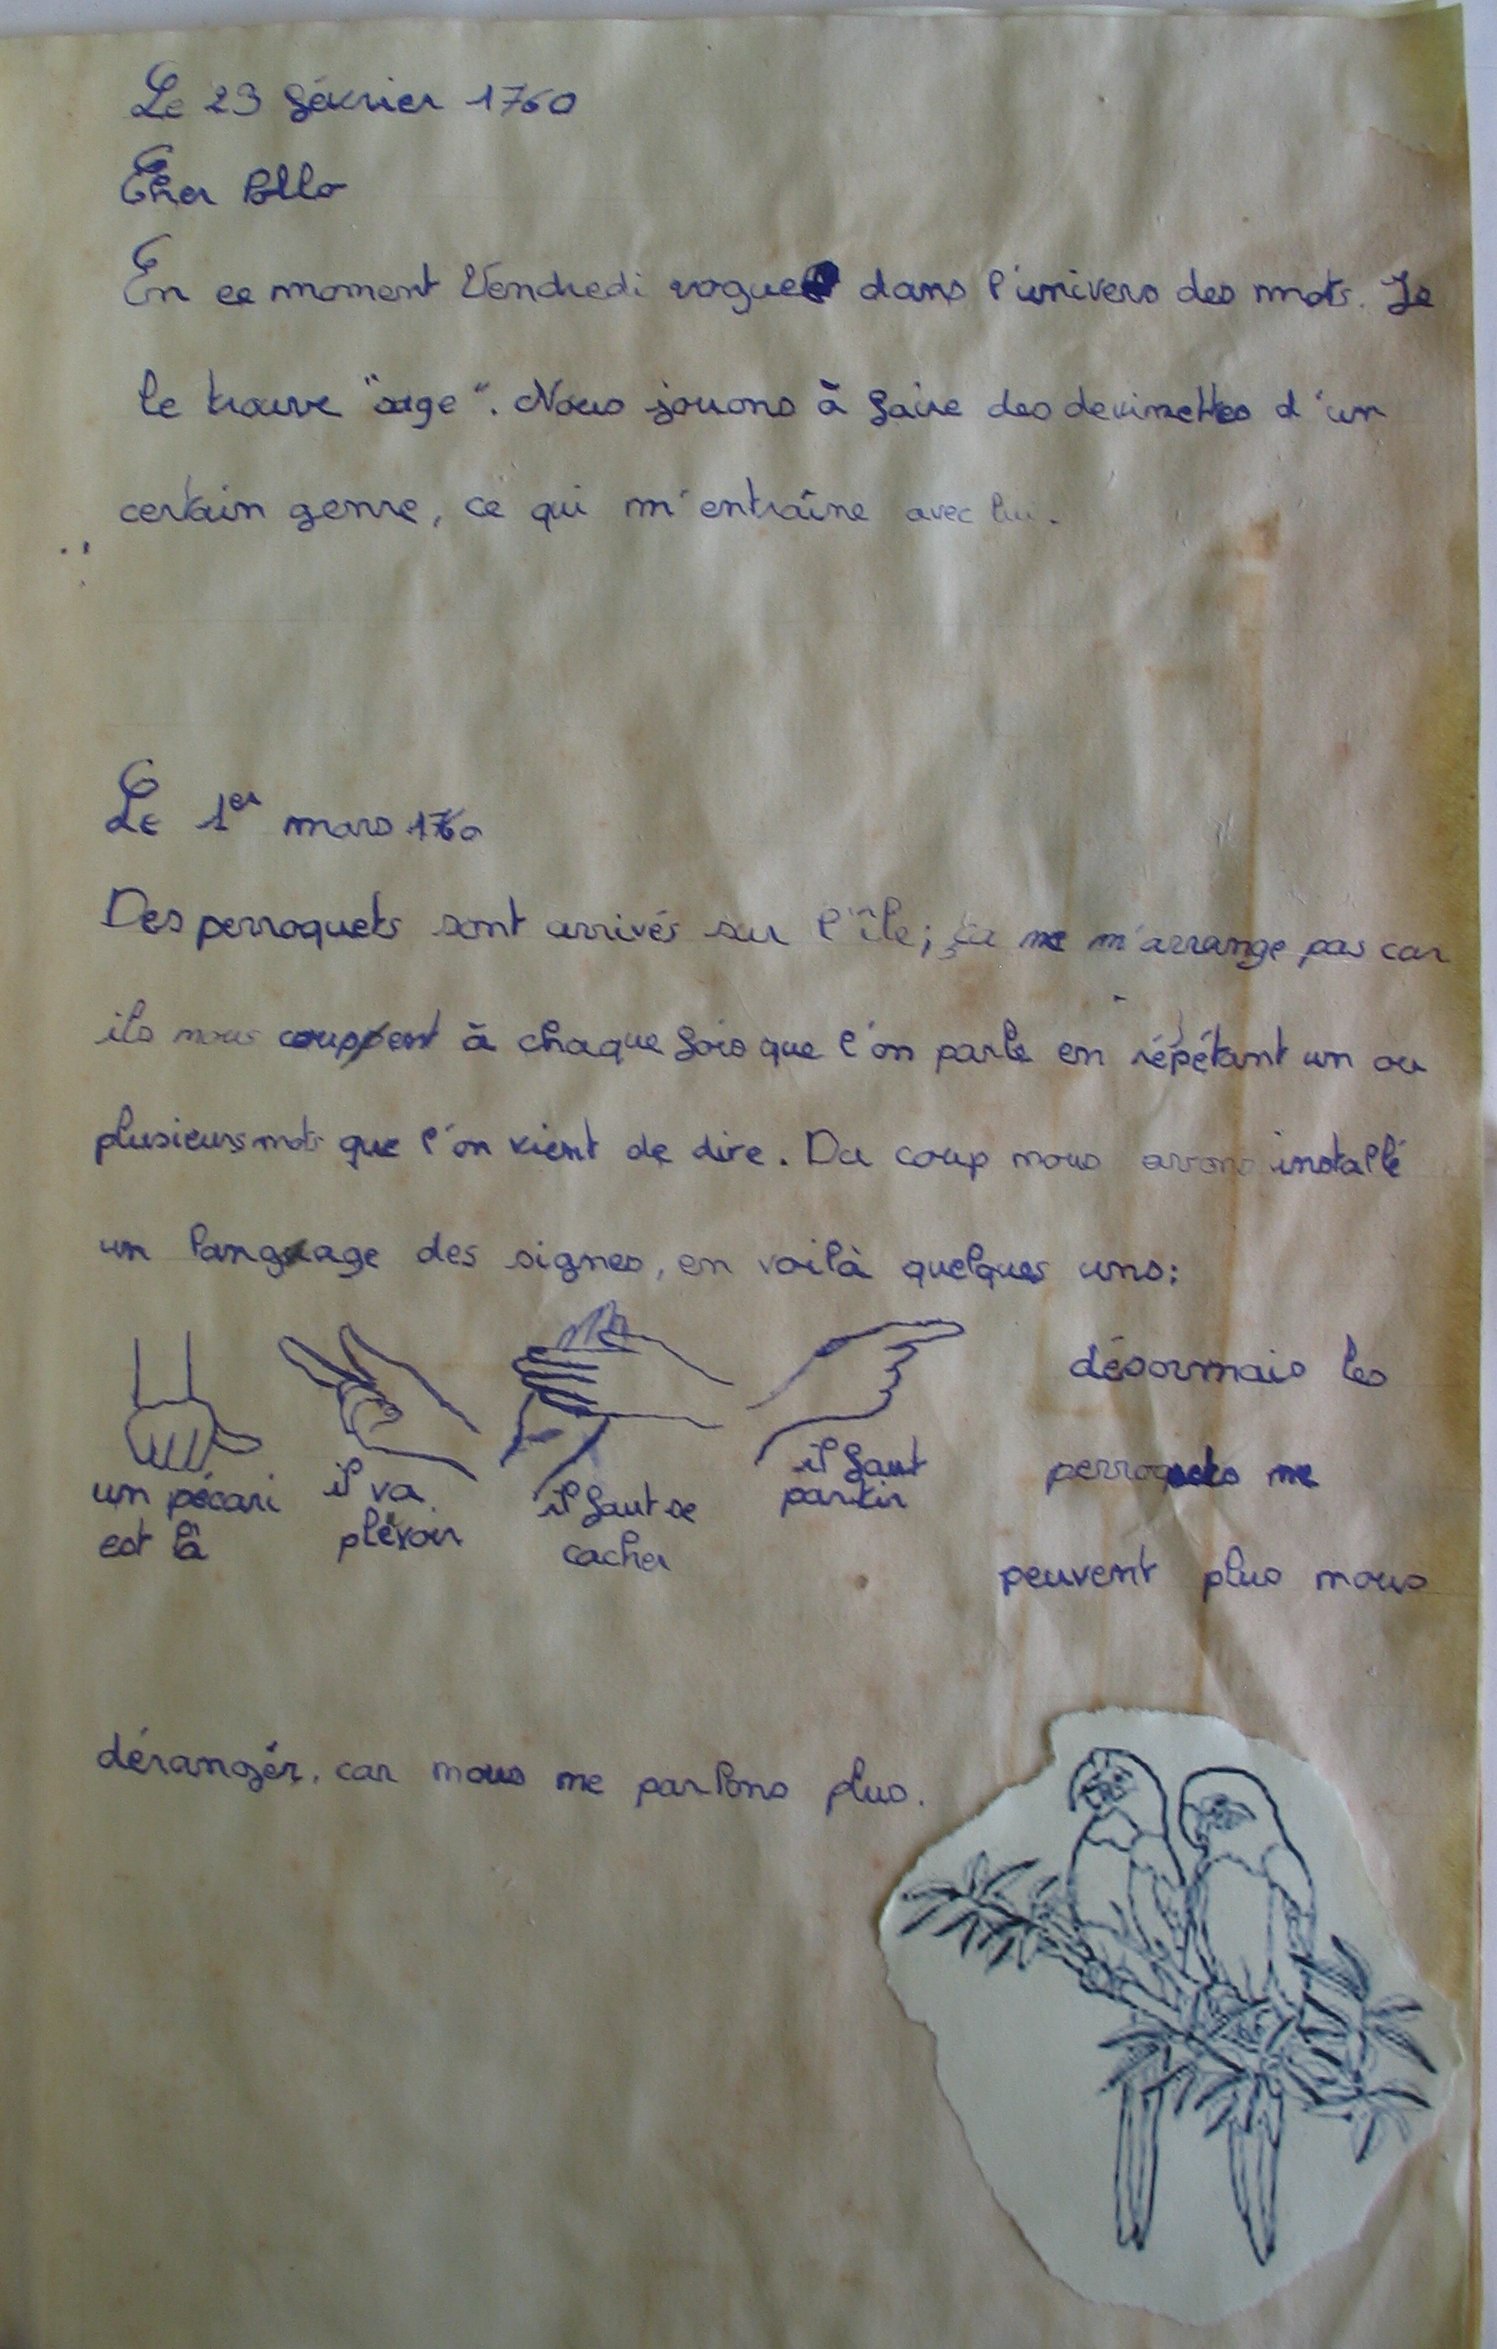 Le 23 février 1760
Cher Pollo
En ce moment Vendredi vogue dans l'univers des mots. Je
le trouve "sage". Nous jouons à faire des devinettes d'un
certain genre, ce qui m'entraîne avec lui.
Le 1er mars 1760
Des perroquets sont arrivés sur l'île; ça ne m'arrange pas car
ils nous coupent à chaque fois que l'on parle en répétant un ou
plusieurs mots que l'on vient de dire. Du coup nous avons installé
un langage des signes, en voilà quelques uns:
un pécari
est là
il va
plevoir
il faut se
cacher
il faut
partir
désormais les
perroquets ne
peuvent plus nous
déranger, car nous ne parlons plus.